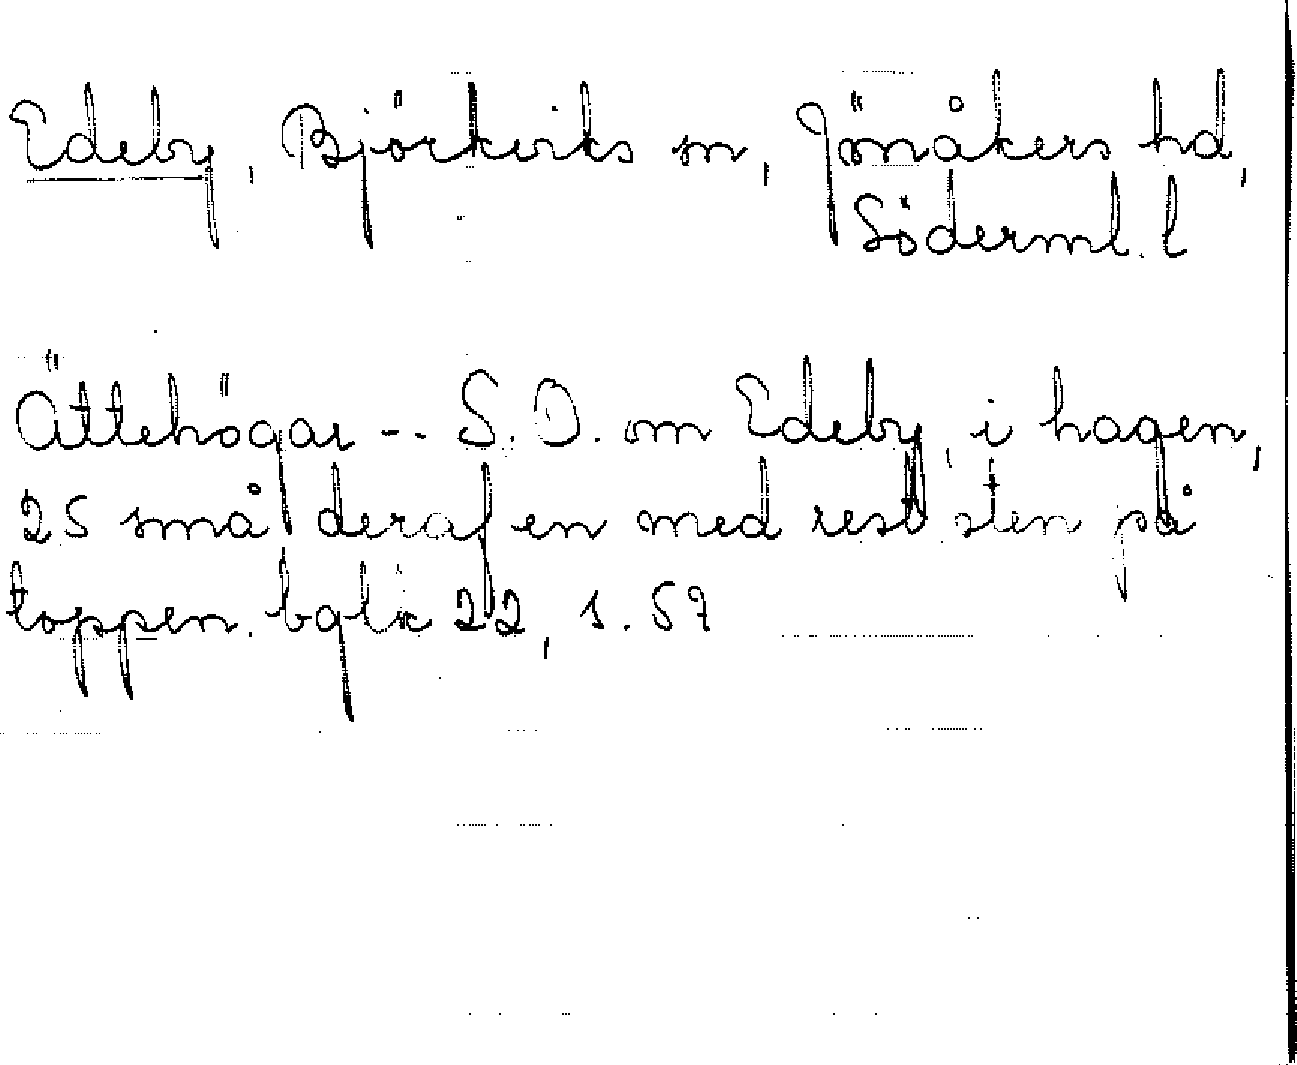 Edeby, Björkviks sn, Jönåkers hd,
Söderml. l
Ättehögar -- S.O. om Edeby, i hagen,
25 små deraf en med rest sten på
toppen. bglk 22, s. 57